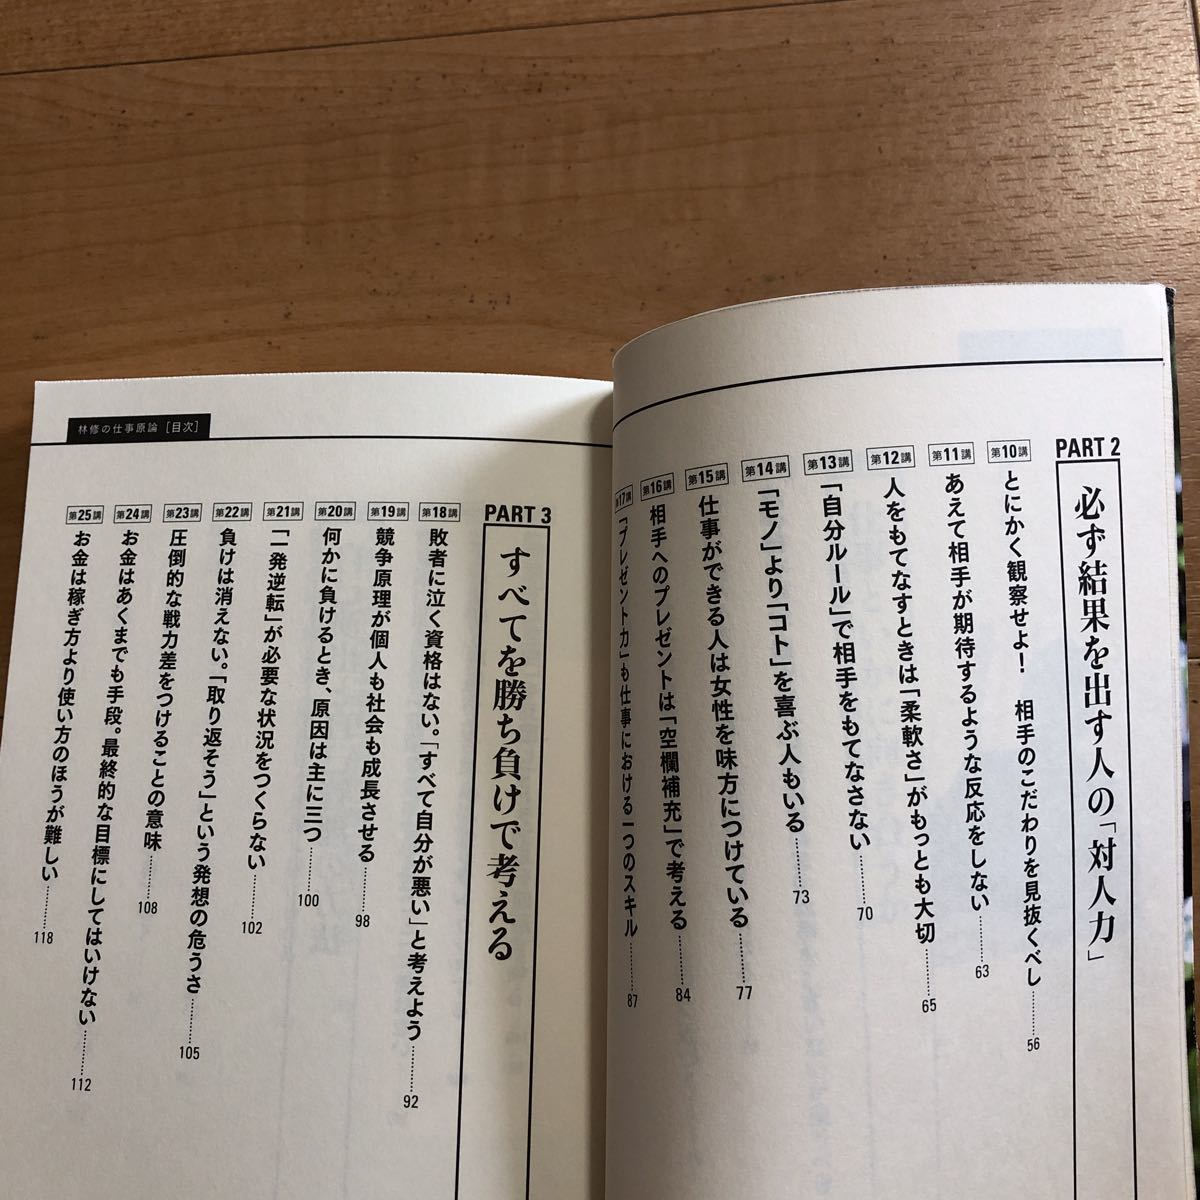 PART 2
必ず結果を出す人の「対人力」
第10講 とにかく観察せよ！　相手のこだわりを見抜くべし………56
第11講 あえて相手が期待するような反応をしない………63
第12講 人をもてなすときは「柔軟さ」がもっとも大切………65
第13講 「自分ルール」で相手をもてなさない………70
第14講 「モノ」より「コト」を喜ぶ人もいる………73
第15講 仕事ができる人は女性を味方につけている………77
第16講 相手へのプレゼントは「空欄補充」で考える………84
第17講 「プレゼント力」も仕事における一つのスキル………87
林修の仕事原論［目次］
PART 3
すべてを勝ち負けで考える
第18講 敗者に泣く資格はない。「すべて自分が悪い」と考えよう………92
第19講 競争原理が個人も社会も成長させる………98
第20講 何かに負けるとき、原因は主に三つ………100
第21講 「一発逆転」が必要な状況をつくらない………102
第22講 負けは消えない。「取り返そう」という発想の危うさ………105
第23講 圧倒的な戦力差をつけることの意味………108
第24講 お金はあくまでも手段。最終的な目標にしてはいけない………112
第25講 お金は稼ぎ方より使い方のほうが難しい………118